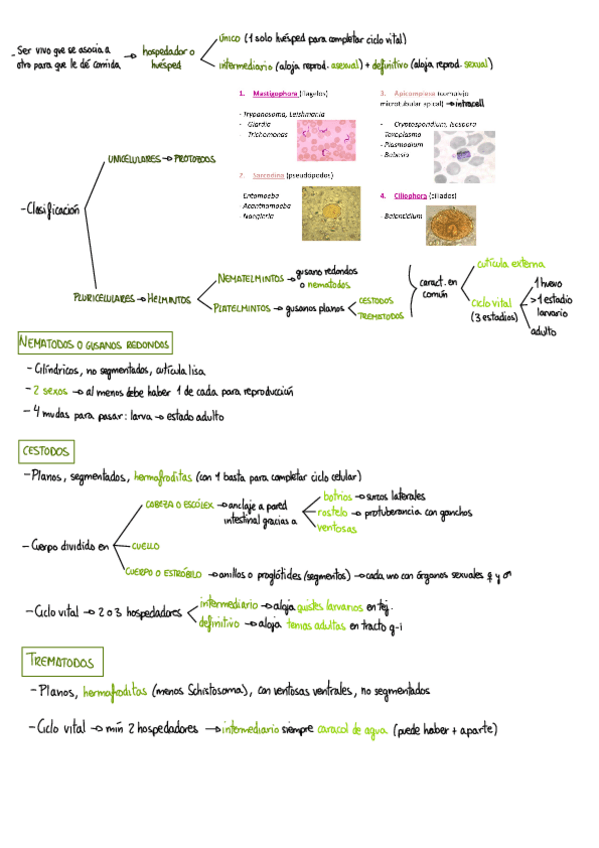 - Ser vivo que se asocia a
otro para que le dé comida
→ hospedador o
huésped
único (1 solo huésped para completar ciclo vital)
intermediario (aloja reprod. asexual) + definitivo (aloja reprod. sexual)
- Clasificación
UNICELULARES → PROTOZOOS
1. Mastigophora (flagelos)
- Trypanosoma, Leishmania
- Giardia
- Trichomonas
2. Sarcodina (pseudopodos)
Entamoeba
- Acanthamoeba
- Naegleria
3. Apicomplexa (complejo
microtubular apical) → intracell
- Cryptosporidium, Isospora
Toxoplasma
- Plasmodium
- Babesia
4. Ciliophora (ciliados)
- Balantidium
PLURICELULARES → HELMINTOS
NEMATELMINTOS → gusano redondos
o nematodos
PLATELMINTOS → gusanos planos
CESTODOS
TREMATODOS
caract. en
común
cutícula externa
ciclo vital
(3 estadios)
1 huevo
>1 estadio
larvario
adulto
NEMATODOS O GUSANOS REDONDOS
- Cilíndricos, no segmentados, cutícula lisa
- 2 sexos → al menos debe haber 1 de cada para reproducción
- 4 mudas para pasar: larva → estado adulto
CESTODOS
- Planos, segmentados, hermafroditas (con 1 basta para completar ciclo celular)
- Cuerpo dividido en
CABEZA O ESCÓLEX → anclaje a pared
intestinal gracias a
botrios → surcos laterales
rostelo → protuberancia con ganchos
ventosas
CUELLO
CUERPO O ESTRÓBILO → anillos o proglótides (segmentos) → cada uno con órganos sexuales ♀ y ♂
- Ciclo vital → 2 o 3 hospedadores
intermediario → aloja quistes larvarios en tej.
definitivo → aloja tenias adultas en tracto g-i
TREMATODOS
- Planos, hermafroditas (menos Schistosoma), con ventosas ventrales, no segmentados
- Ciclo vital → mín 2 hospedadores → intermediario siempre caracol de agua (puede haber + aparte)